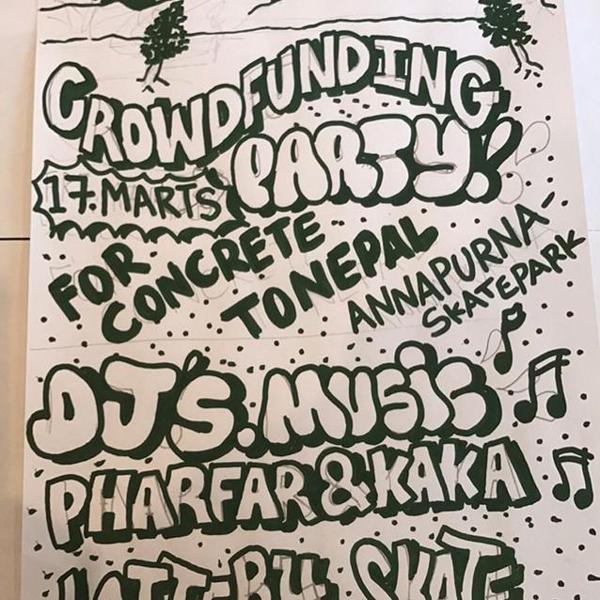 CROWDFUNDING
PARTY!
17. MARTS
FOR
CONCRETE
TO NEPAL
ANNAPURNA-
SKATEPARK
DJ'S. MUSIC
PHARFAR & KAKA
SKATE